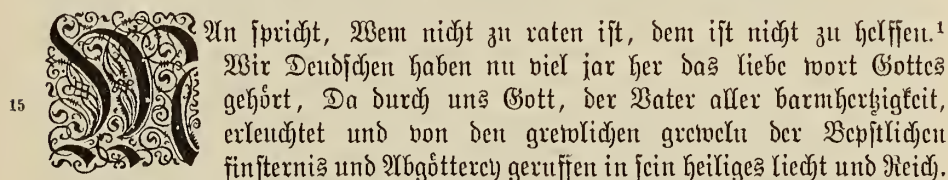 MAn spricht, Wem nicht zu raten ist, dem ist nicht zu helffen.¹
Wir Deudschen haben nu viel jar her das liebe wort Gottes
15 gehört, Da durch uns Gott, der Vater aller barmhertzigkeit,
erleuchtet und von den grewlichen greweln der Bepstlichen
finsternis und Abgötterey geruffen in sein heiliges liecht und Reich.